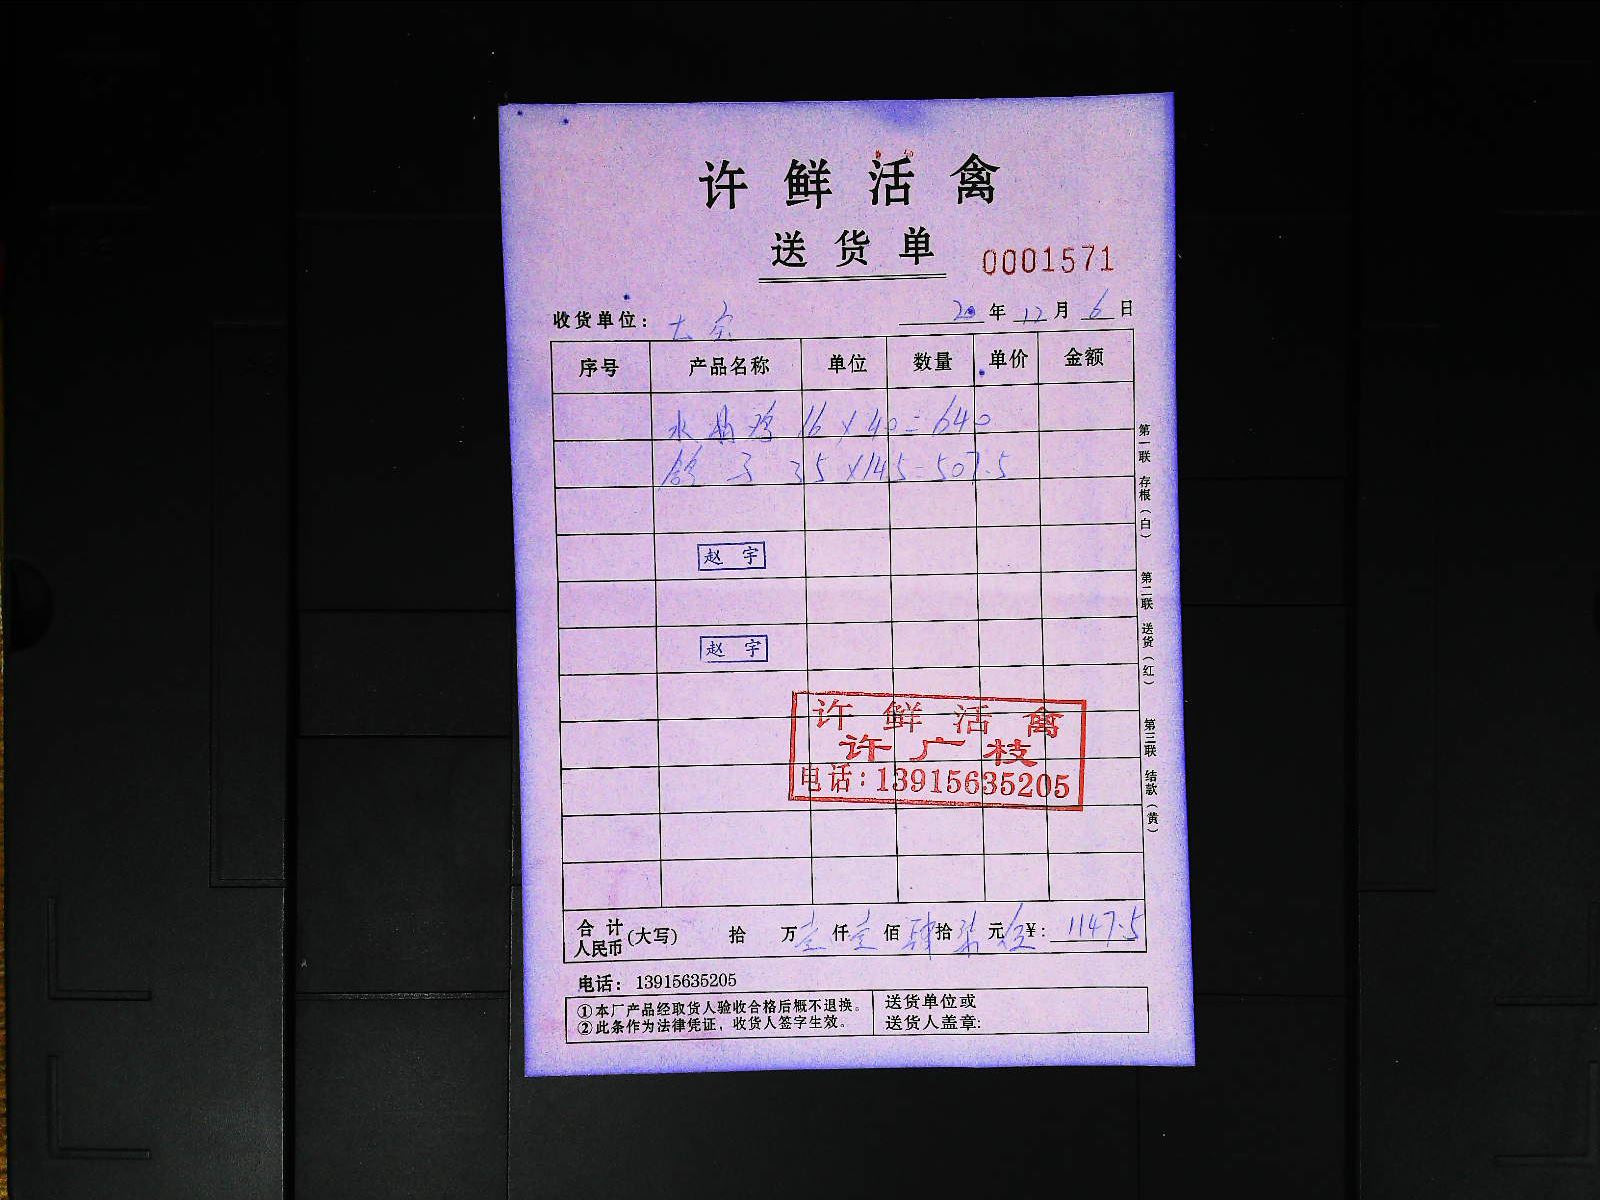 许鲜活禽
送货单 0001571
收货单位： 20年12月6日
序号 产品名称 单位 数量 单价 金额
水晶鸡 16×40=640
鸽子 35×145=507.5
赵宇
赵宇
许鲜活禽
许广枝
电话：13915635205
合计人民币(大写) 拾 万壹仟壹佰肆拾柒元伍¥：1147.5
电话：13915635205
①本厂产品经取货人验收合格后概不退换。
②此条作为法律凭证，收货人签字生效。
送货单位或
送货人盖章:
第一联 存根（白） 第二联 送货（红） 第三联 结款（黄）